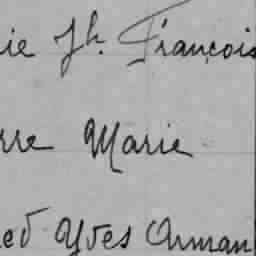 ie Jh. François
rre Marie
ed Yves Arman